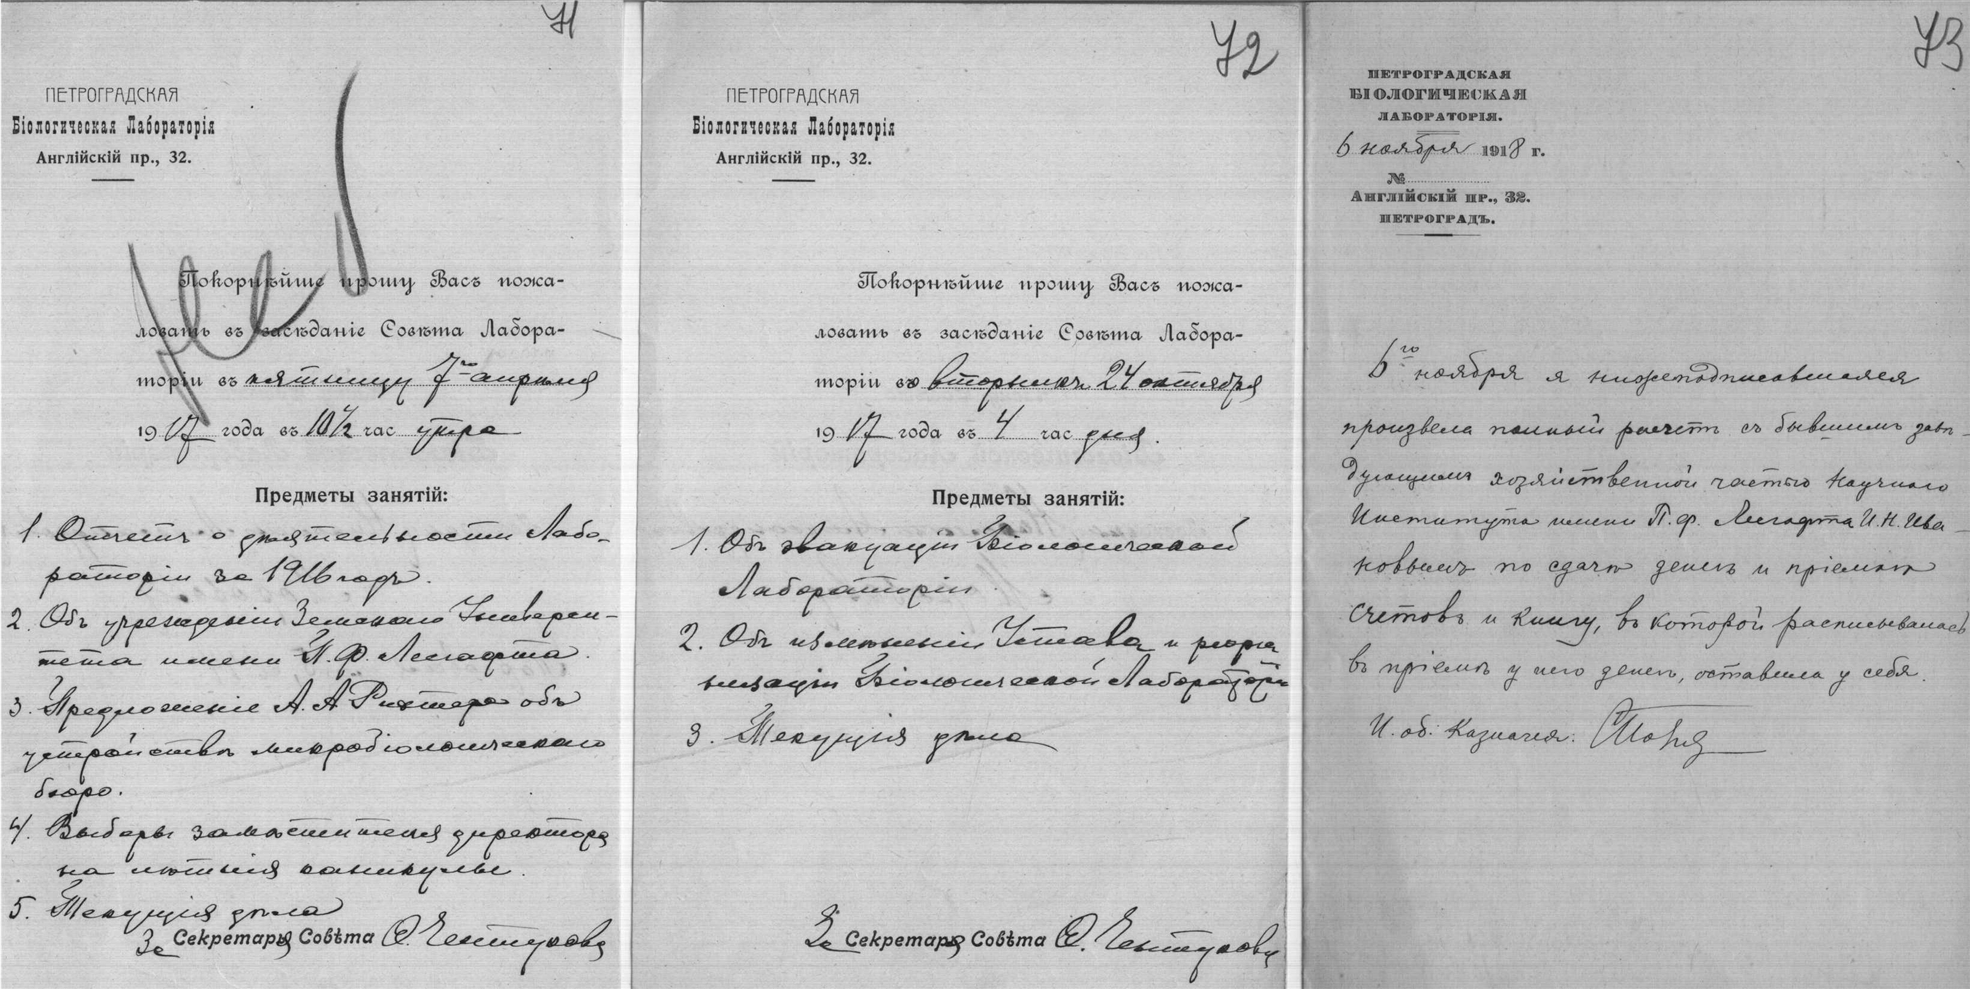 71
ПЕТРОГРАДСКАЯ
Біологическая Лабораторія
Англійскій пр., 32.
Покорнѣйше прошу Васъ пожа-
ловать въ засѣданіе Совѣта Лабора-
торіи въ пятницу 7го апрѣля
1917 года въ 10½ час утра
Предметы занятій:
1. Отчетъ о дѣятельности Лабо-
раторіи за 1916 годъ.
2. Объ учрежденіи Земскаго Универси-
тета имени П. Ф. Лесгафта.
3. Предложеніе А. А Рихтера объ
устройствѣ микробіологическаго
бюро.
4. Выборы замѣстителя директора
на лѣтнія каникулы.
5. Текущія дѣла
За Секретаря Совѣта
72
ПЕТРОГРАДСКАЯ
Біологическая Лабораторія
Англійскій пр., 32.
Покорнѣйше прошу Васъ пожа-
ловать въ засѣданіе Совѣта Лабора-
торіи во вторникъ 24 октября
1917 года въ 4 час дня.
Предметы занятій:
1. Объ эвакуаціи Біологической
Лабораторіи.
2. Объ измѣненіи Устава и реорга
низаціи Біологической Лабораторіи
3. Текущія дѣла
За Секретаря Совѣта
73
ПЕТРОГРАДСКАЯ
БІОЛОГИЧЕСКАЯ
ЛАБОРАТОРІЯ.
6 ноября 1918 г.
№
АНГЛІЙСКІЙ ПР., 32.
ПЕТРОГРАДЪ.
6го ноября я нижеподписавшаяся
произвела полный расчетъ съ бывшимъ завѣ-
дующимъ хозяйственной частью Научного
Института имени П. Ф. Лесгафта И. Н. Ива-
новымъ по сдачѣ денегъ и пріемкѣ
счетовъ и книгу, въ которой расписывалась
въ пріемкѣ у него денегъ, оставила у себя.
И. об. Казначея.